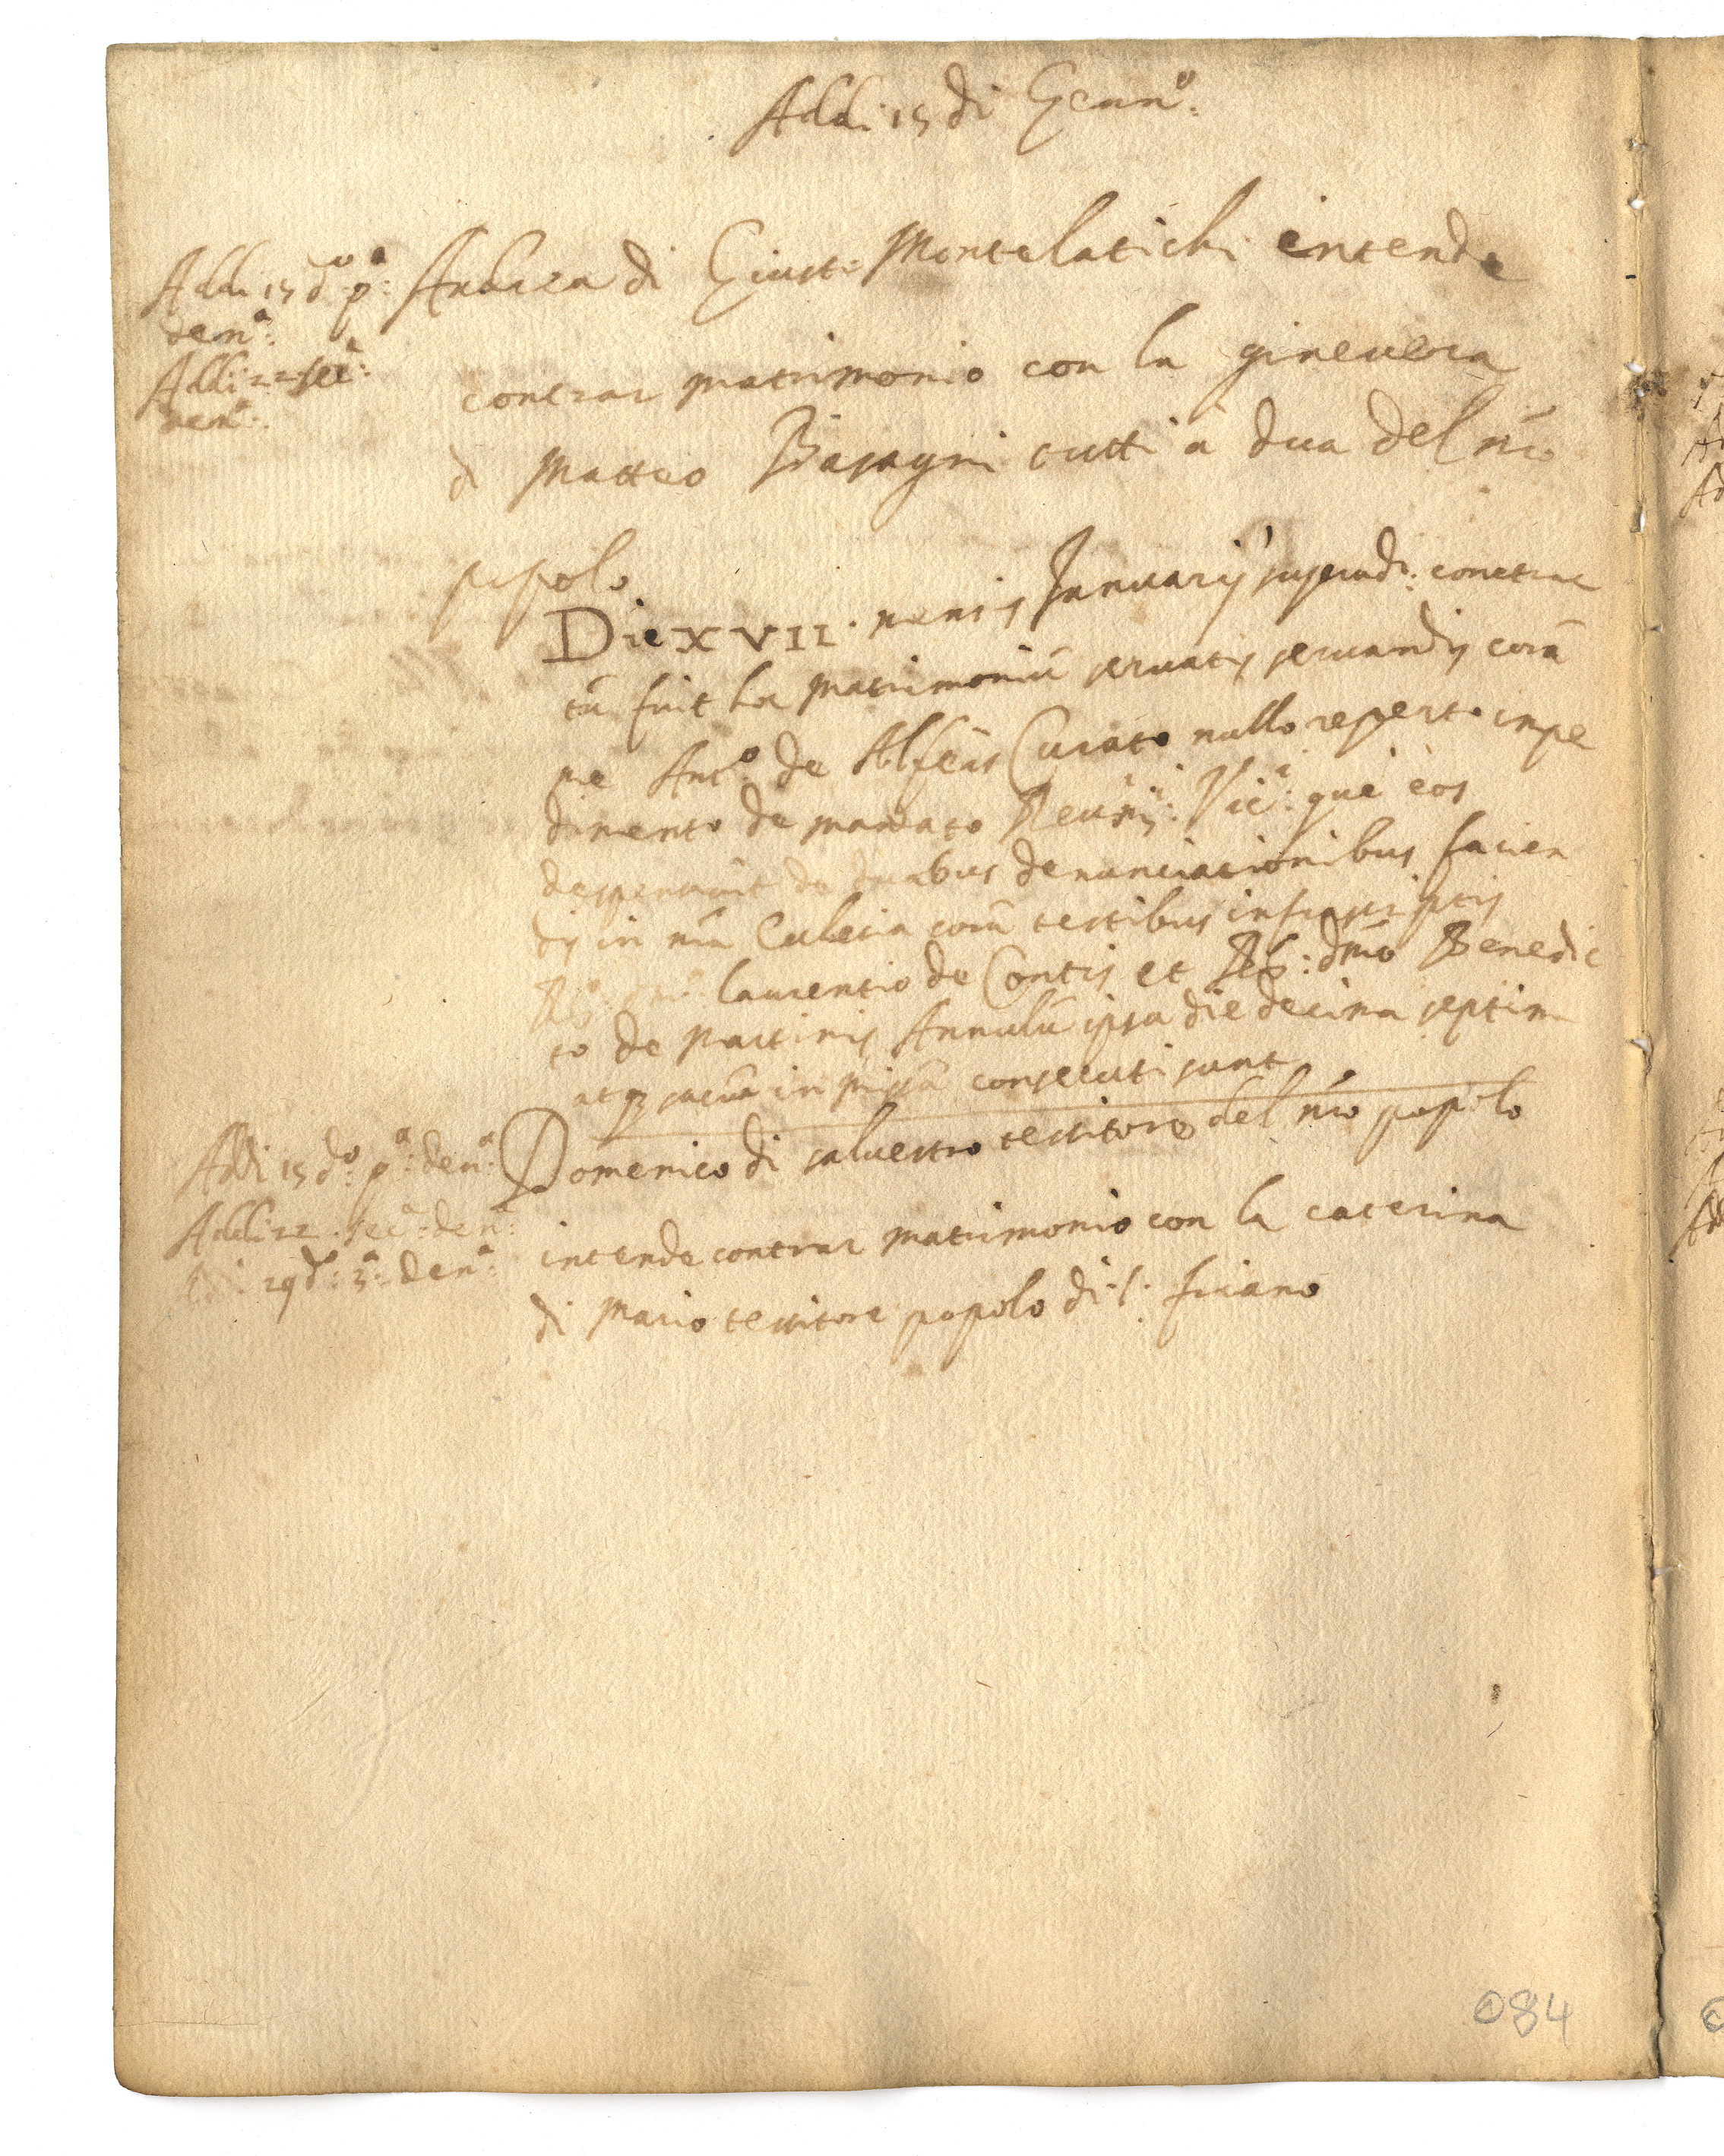 Addi 15 di Genn.º
Addi 15 dº pª
denª:
Addi 22 secª:
denª:
Andrea di Giusto Montelatichi intende
contrar matrimonio con la ginevera
di Matteo tutti à dua del nrõ
popolo
Die XVII. mensis Januarij contrac
tũ fuit hoc matrimoniũ servatis servandis corã
me Antº: de Alfeis Curato nullo reperto impe
dimento de mandato Vicª: què eos
de duabus denunciationibus facien
dis in nrã Ecclesia corã testibus infrascriptis
Laurentio de Contis et Rdº: dnõ Benedic
to de Martinis Annulũ ipsa die decima septima
atq; in missa consecuti sunt
Addi 15 dº: pª: denª:
Addi 22 secª: denª:
29 dº: 3ª: denª:
Domenico di salvestro tessitore del nrõ popolo
intende contrar matrimonio con la caterina
di Mario tessitore popolo di S. friano
084